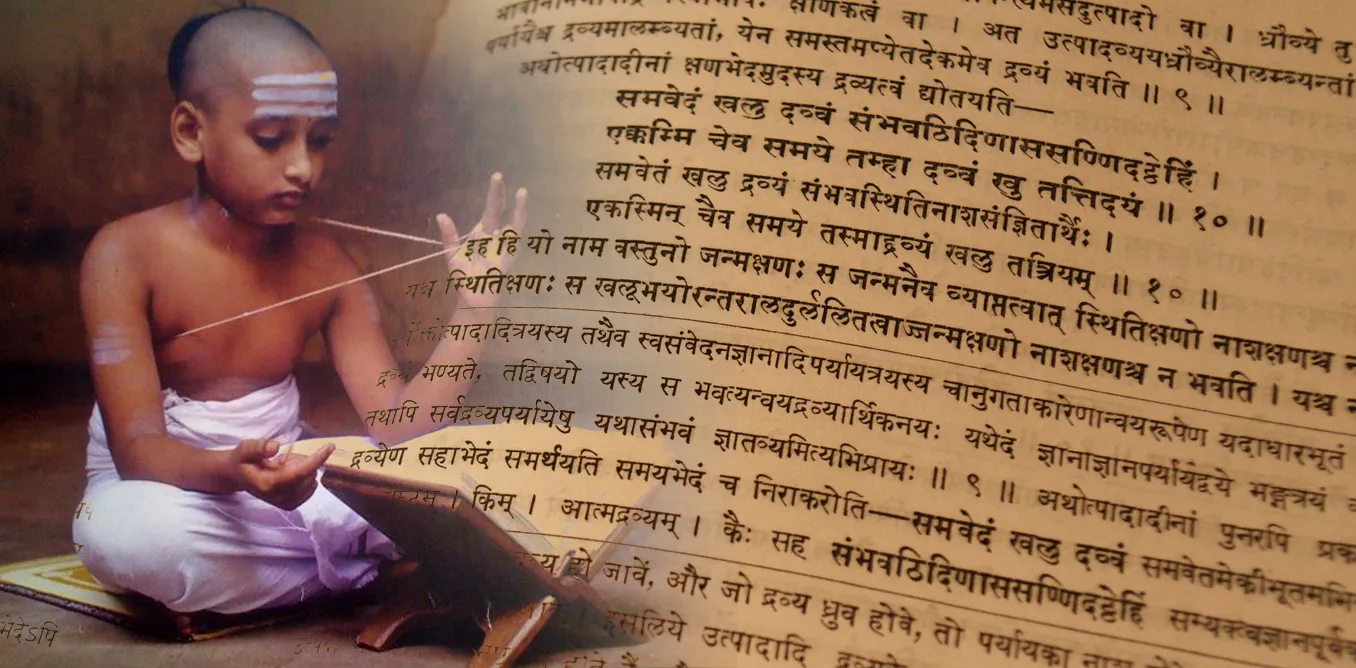 क्षणिकत्वं वा । अत उत्पादव्ययध्रौव्यैरालम्ब्यन्तां
पर्यायैश्च द्रव्यमालम्ब्यतां, येन समस्तमप्येतदेकमेव द्रव्यं भवति ॥ ९ ॥
अथोत्पादादीनां क्षणभेदमुदस्य द्रव्यत्वं द्योतयति—
समवेदं खलु दव्वं संभवठिदिणाससण्णिदट्ठेहिं ।
एक्कम्मि चेव समये तम्हा दव्वं खु तत्तिदयं ॥ १० ॥
समवेतं खलु द्रव्यं संभवस्थितिनाशसंज्ञितार्थैः ।
एकस्मिन् चैव समये तस्माद्द्रव्यं खलु तत्त्रितयम् ॥ १० ॥
इह हि यो नाम वस्तुनो जन्मक्षणः स जन्मनैव व्याप्तत्वात् स्थितिक्षणो नाशक्षणश्च न
यश्च स्थितिक्षणः स खलूभयोरन्तरालदुर्ललितत्वाज्जन्मक्षणो नाशक्षणश्च न भवति । यश्च
तथैव स्वसंवेदनज्ञानादिपर्यायत्रयस्य चानुगताकारेणान्वयरूपेण यदाधारभूतं
द्रव्यं भण्यते, तद्विषयो यस्य स भवत्यन्वयद्रव्यार्थिकनयः यथेदं ज्ञानाज्ञानपर्यायद्वये भङ्गत्रयं
तथापि सर्वद्रव्यपर्यायेषु यथासंभवं ज्ञातव्यमित्यभिप्रायः ॥ ९ ॥ अथोत्पादादीनां पुनरपि
द्रव्येण सहाभेदं समर्थयति समयभेदं च निराकरोति—समवेदं खलु दव्वं समवेतमेकीभूतमभिन्नं
। किम् । आत्मद्रव्यम् । कैः सह संभवठिदिणाससण्णिदट्ठेहिं
हो जावें, और जो द्रव्य ध्रुव होवे, तो पर्यायका
इसलिये उत्पादादि